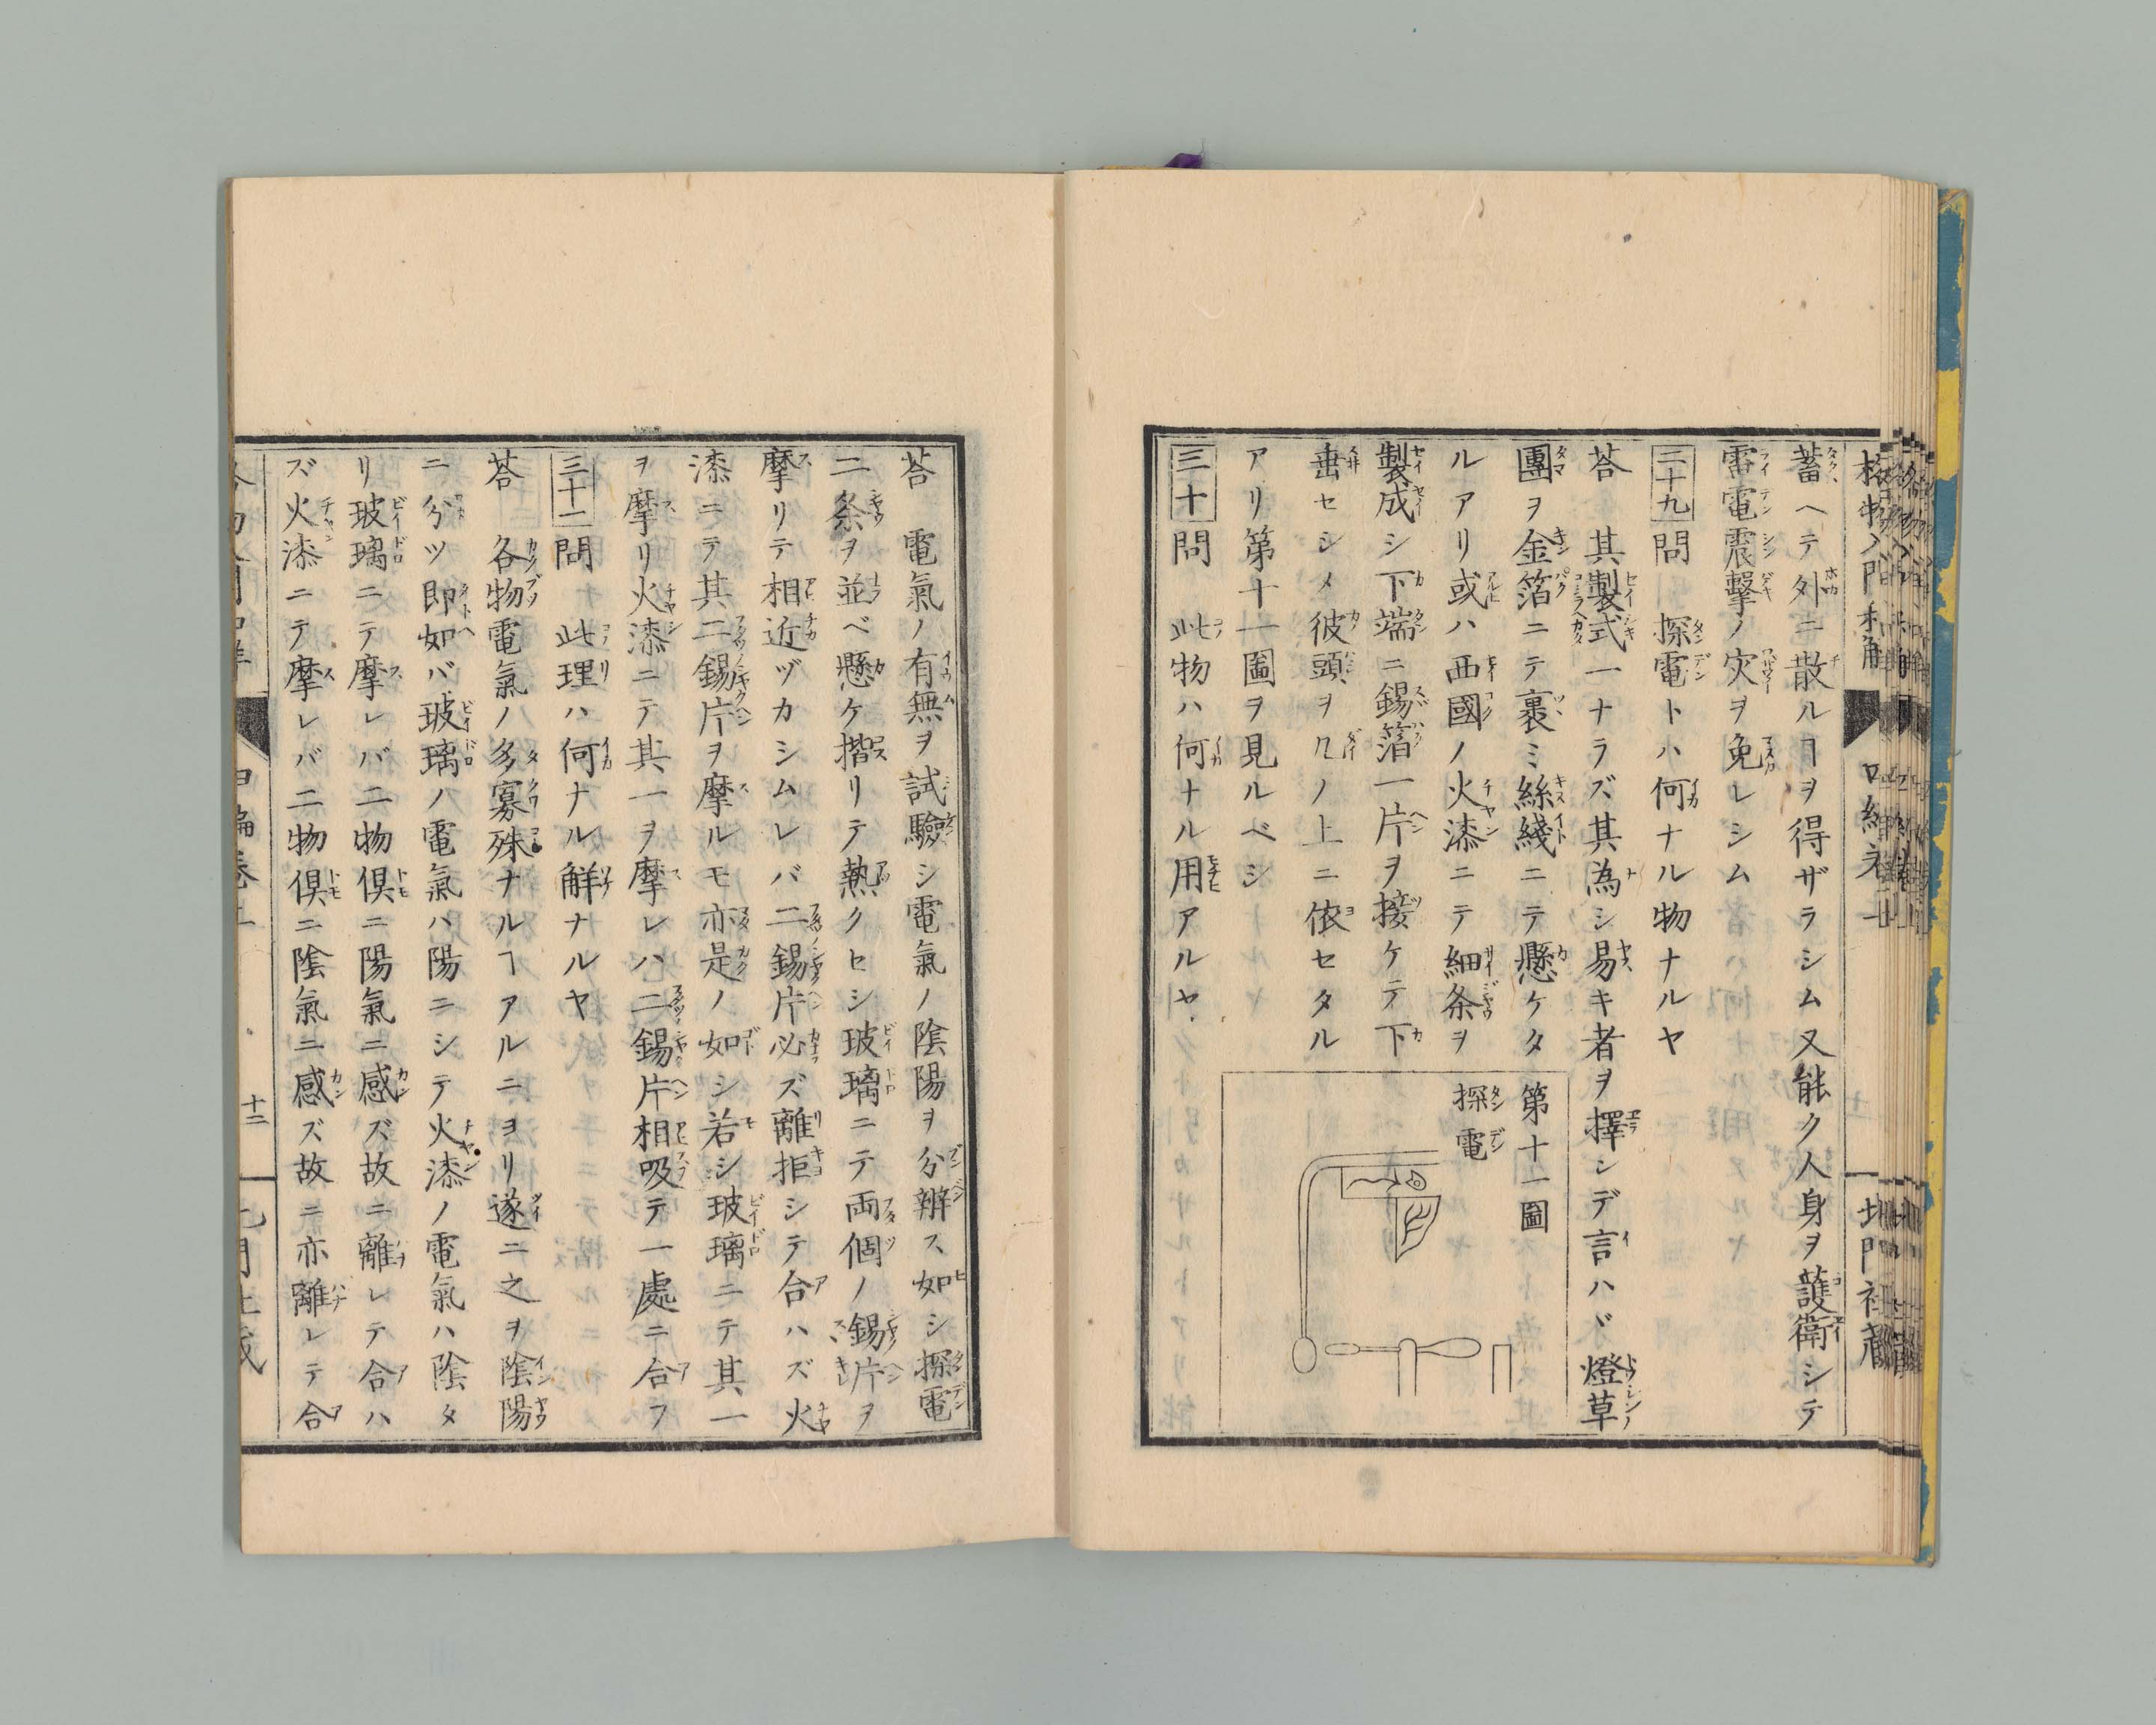 蓄ヘテ外ニ散ルヿヲ得ザラシム又能ク人身ヲ護衛シテ
雷電震擊ノ灾ヲ免レシム
二十九問 探電トハ何ナル物ナルヤ
荅 其製式一ナラズ其為シ易キ者ヲ擇ンデ言ハヾ燈草
團ヲ金箔ニテ裹ミ絲綫ニテ懸ケタ
ルアリ或ハ西國ノ火漆ニテ細条ヲ
製成シ下端ニ錫箔一片ヲ接ケテ下
垂セシメ彼頭ヲ几ノ上ニ依セタル
アリ第十一圖ヲ見ルベシ
第十一圖
探電
三十問 此物ハ何ナル用アルヤ
荅 電氣ノ有無ヲ試驗シ電氣ノ陰陽ヲ分辨ス如シ探電
二条ヲ並ベ懸ケ揩リテ熱クセシ玻璃ニテ両個ノ錫片ヲ
摩リテ相近ヅカシムレバ二錫片必ズ離拒シテ合ハズ火
漆ニテ其二錫片ヲ摩ルモ亦是ノ如シ若シ玻璃ニテ其一
ヲ摩リ火漆ニテ其一ヲ摩レハ二錫片相吸テ一處ニ合フ
三十一問 此理ハ何ナル解ナルヤ
荅 各物電氣ノ多寡殊ナルヿアルニヨリ遂ニ之ヲ陰陽
ニ分ツ即如バ玻璃ノ電氣ハ陽ニシテ火漆ノ電氣ハ陰タ
リ玻璃ニテ摩レバ二物倶ニ陽氣ニ感ズ故ニ離レテ合ハ
ズ火漆ニテ摩レバ二物倶ニ陰氣ニ感ズ故ニ亦離レテ合
十二